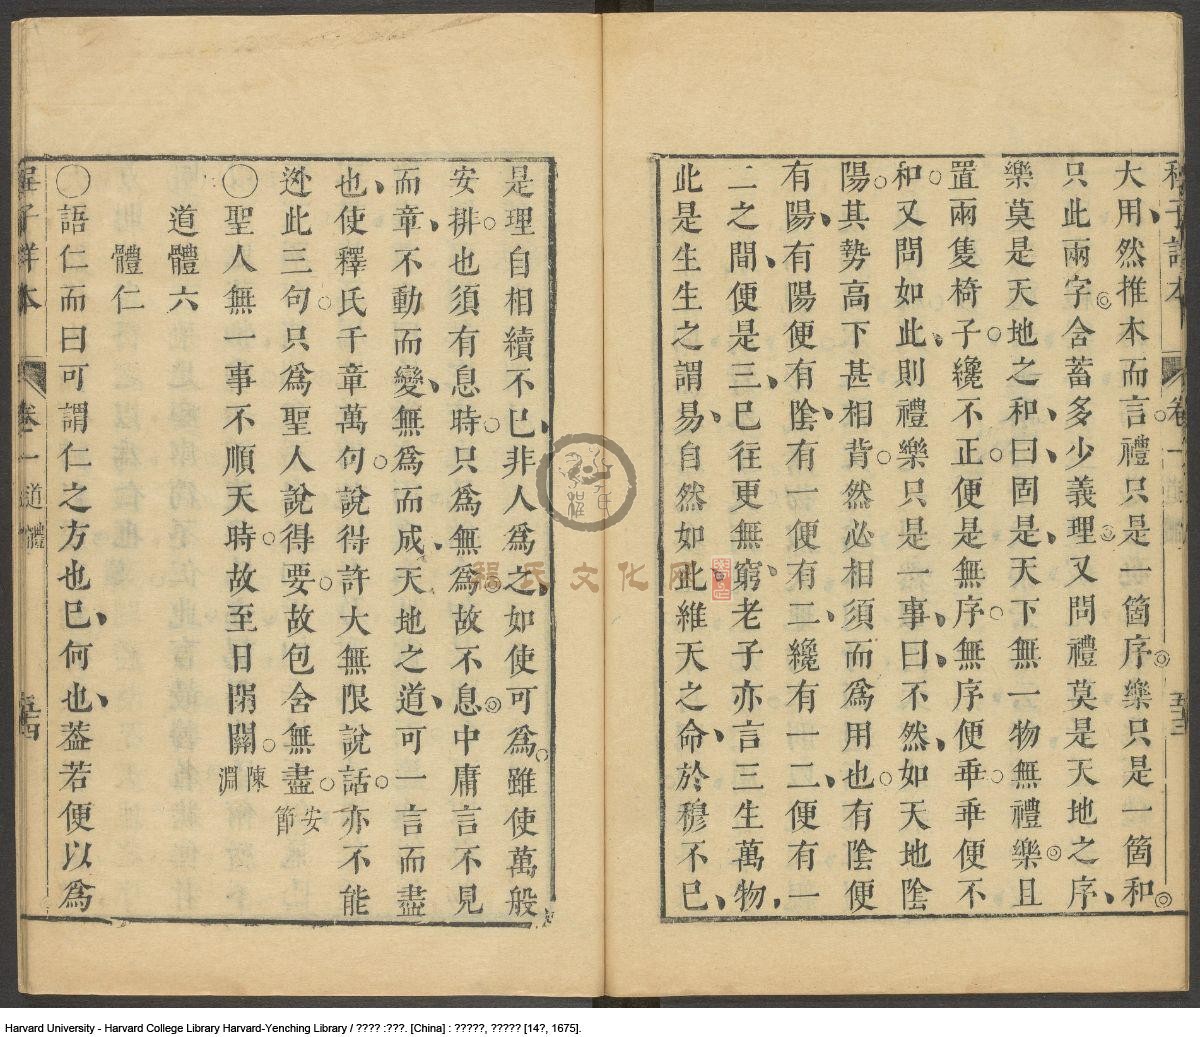 程子詳本
卷一
道體
五十三
大用然推本而言禮只是一箇序樂只是一箇和
只此兩字含蓄多少義理又問禮莫是天地之序
樂莫是天地之和曰固是天下無一物無禮樂且
置兩隻椅子纔不正便是無序無序便乖乖便不
和又問如此則禮樂只是一事曰不然如天地陰
陽其勢高下甚相背然必相須而為用也有陰便
有陽有陽便有陰有一便有二纔有一二便有一
二之間便是三已往更無窮老子亦言三生萬物
此是生生之謂易自然如此維天之命於穆不已
是理自相續不已非人為之如使可為雖使萬般
安排也須有息時只為無為故不息中庸言不見
而章不動而變無為而成天地之道可一言而盡
也使釋氏千章萬句說得許大無限說話亦不能
逃此三句只為聖人說得要故包含無盡 安節
〇聖人無一事不順天時故至日閉關 陳淵
道體六
體仁
〇語仁而曰可謂仁之方也已何也葢若便以為
程子詳本
卷一
道體
五十四
程氏文化网
Harvard University - Harvard College Library Harvard-Yenching Library / ???? :???. [China] : ?????, ????? [14?, 1675].